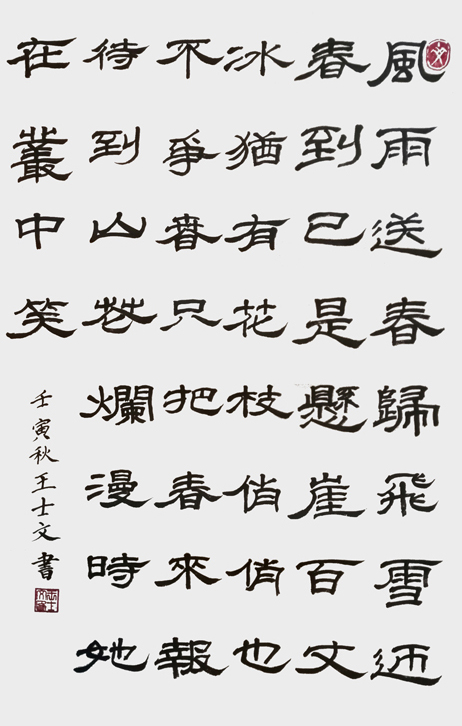 風雨送春歸飛雪迎
春到已是懸崖百丈
冰猶有花枝俏俏也
不爭春只把春來報
待到山花爛漫時她
在叢中笑
壬寅秋王士文書